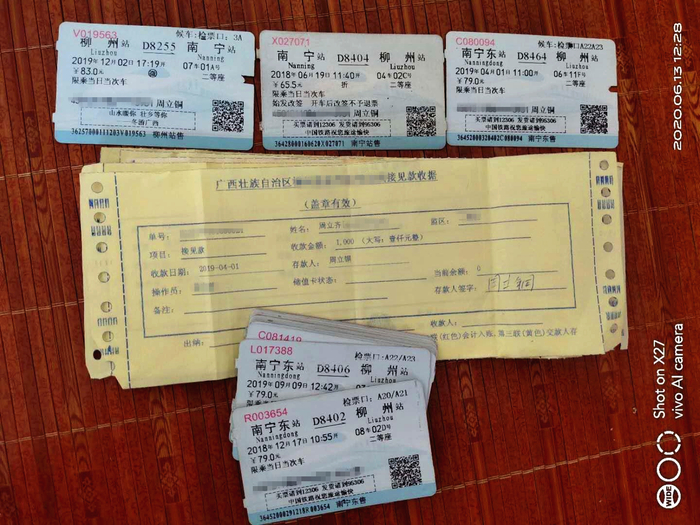 V019563
候车:检票口: 3A
柳州站 D8255 南宁站
Liuzhou Nanning
2019年12月02日17:19开 07车01A号
￥83.0元 二等座
限乘当日当次车
周立铜
山水暖你 壮乡等你
冬游广西
36257000111203V019563 柳州站售
X027071
南宁站 D8404 柳州站
Nanning Liuzhou
2018年06月19日11:40开 04车02C号
￥65.5元 折 二等座
限乘当日当次车
始发改签 开车后改签不予退票
周立铜
买票请到12306 发货请到95306
中国铁路祝您旅途愉快
36428000160620X027071 南宁站售
C080094
候车:检票口A22A23
南宁东站 D8464 柳州站
Nanningdong Liuzhou
2019年04月01日11:00开 06车11F号
￥79.0元 二等座
限乘当日当次车
周立铜
买票请到12306 发货请到95306
中国铁路祝您旅途愉快
36452000320402C080094 南宁东售
广西壮族自治区 接见款收据
(盖章有效)
单号: 姓名: 周立齐 监区:
项目: 接见款 收款金额: 1,000 (大写: 壹仟元整)
收款日期: 2019-04-01 存款人: 周立铜
操作员: 储值卡状态: 当前金额: 0
备注: 存款人签字: 周立铜
出纳: 收款人:
(红色)会计入账、第三联(黄色)交款人存
C081419
L017388
检票口:A22/A23
南宁东站 D8406 柳州站
Nanningdong
2019年09月09日12:42开
￥79.0元
R003654
检票口: A20/A21
南宁东站 D8402 柳州站
Nanningdong Liuzhou
2018年12月17日10:55开 08车02D号
￥79.0元 二等座
限乘当日当次车
买票请到12306 发货请到95306
中国铁路祝您旅途愉快
36452000291218R003654 南宁东售
2020.06.13 12:28
Shot on X27
vivo AI camera
WIDE